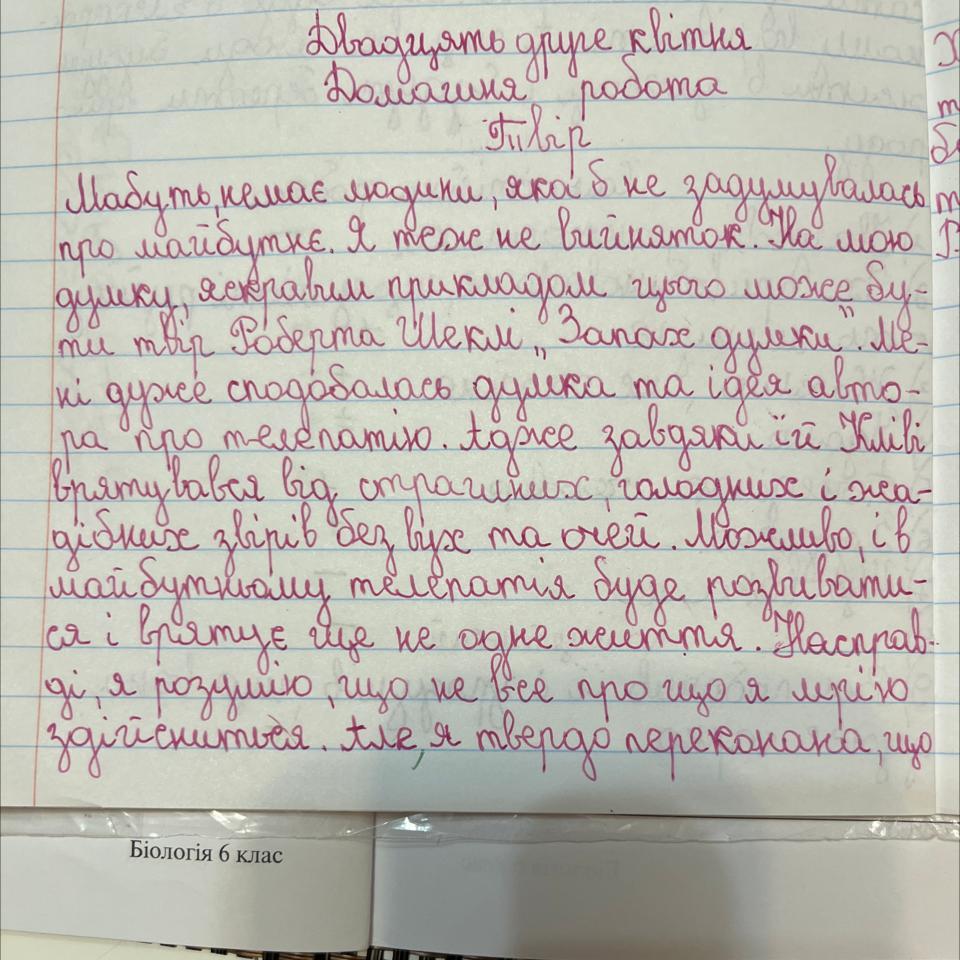 Двадцять друге квітня
Домашня робота
Твір
Мабуть, немає людини, яка б не задумувалась
про майбутнє. Я теж не вийняток. На мою
думку, яскравим прикладом цього може бу-
ти твір Роберта Шеклі „Запах думки". Ме-
ні дуже сподобалась думка та ідея авто-
ра про телепатію. Адже завдяки їй Кліві
врятувався від страшних, голодних і жа-
дібних звірів без вух та очей. Можливо, і в
майбутньому телепатія буде розвивати-
ся і врятує ще не одне життя. Насправ-
ді, я розумію, що не все про що я мрію
здійсниться. Але, я твердо переконана, що
Біологія 6 клас